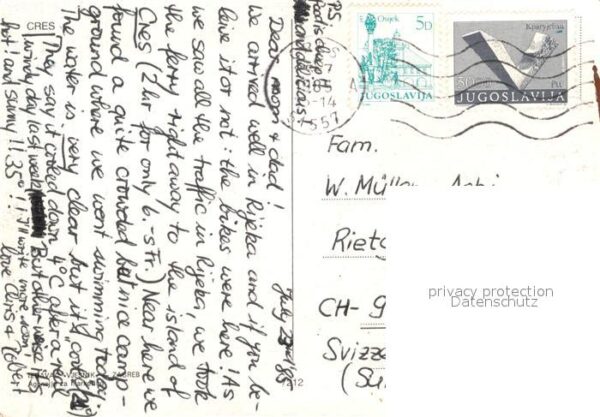 CRES
P.S.
July 23rd 85
Dear mom & dad!
we arrived well in Rijeka and if you be-
leive it or not: the bikes were here! As
we saw all the traffic in Rijeka, we took
the ferry right away to the island of
Cres (2 hr for only 6.- sFr.) Near here we
found a quite crowded but nice camp-
ground where we went swimming today.
The water is very clear but it's
They say it cooled down 4°C after a real
windy day last week But otherwise it's
hot and sunny !! 35° !! I'll write more soon!
love Chris &
VJESNIK ZAGREB
Agencija za marketing
212
Osijek
5D
JUGOSLAVIJA
50
JUGOSLAVIJA
Fam.
W. Müller
Riet
CH- 9
Svizze
privacy protection
Datenschutz